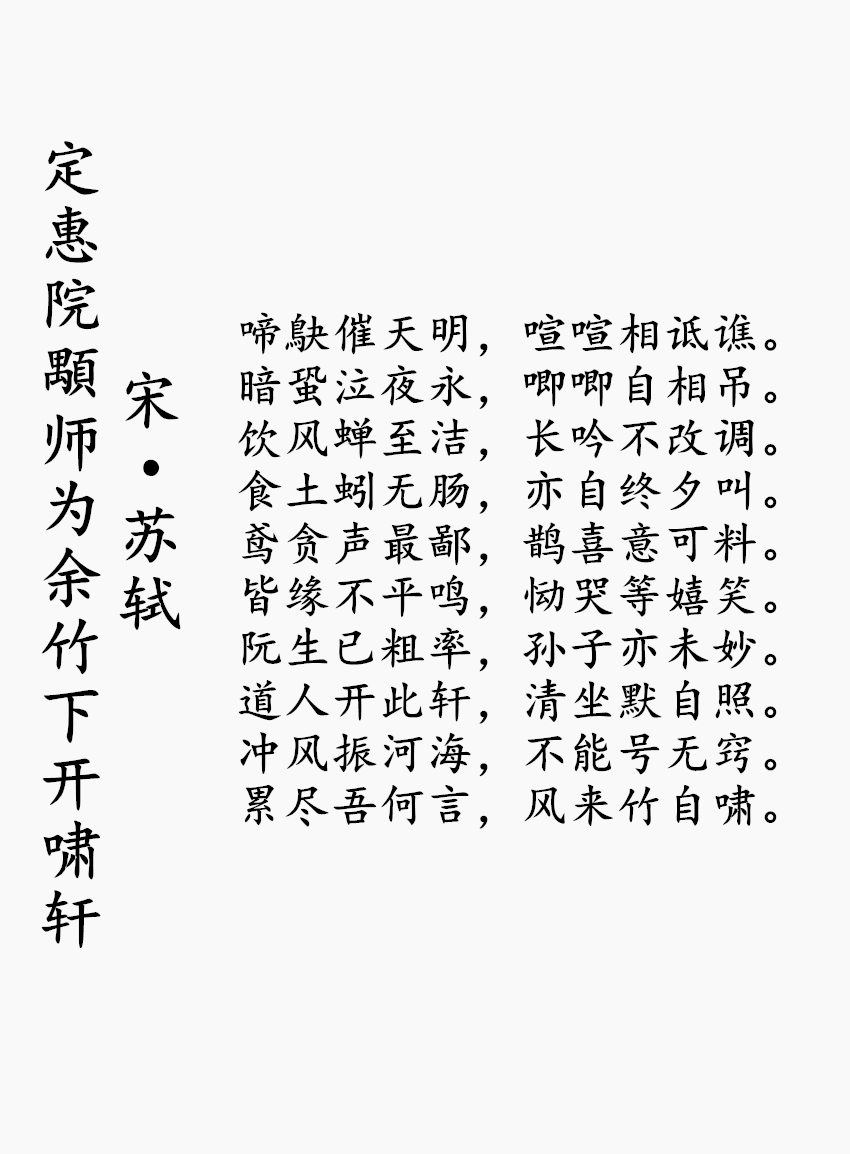 定惠院顒师为余竹下开啸轩
宋·苏轼
啼鴃催天明，喧喧相诋谯。
暗蛩泣夜永，唧唧自相吊。
饮风蝉至洁，长吟不改调。
食土蚓无肠，亦自终夕叫。
鸢贪声最鄙，鹊喜意可料。
皆缘不平鸣，恸哭等嬉笑。
阮生已粗率，孙子亦未妙。
道人开此轩，清坐默自照。
冲风振河海，不能号无窍。
累尽吾何言，风来竹自啸。